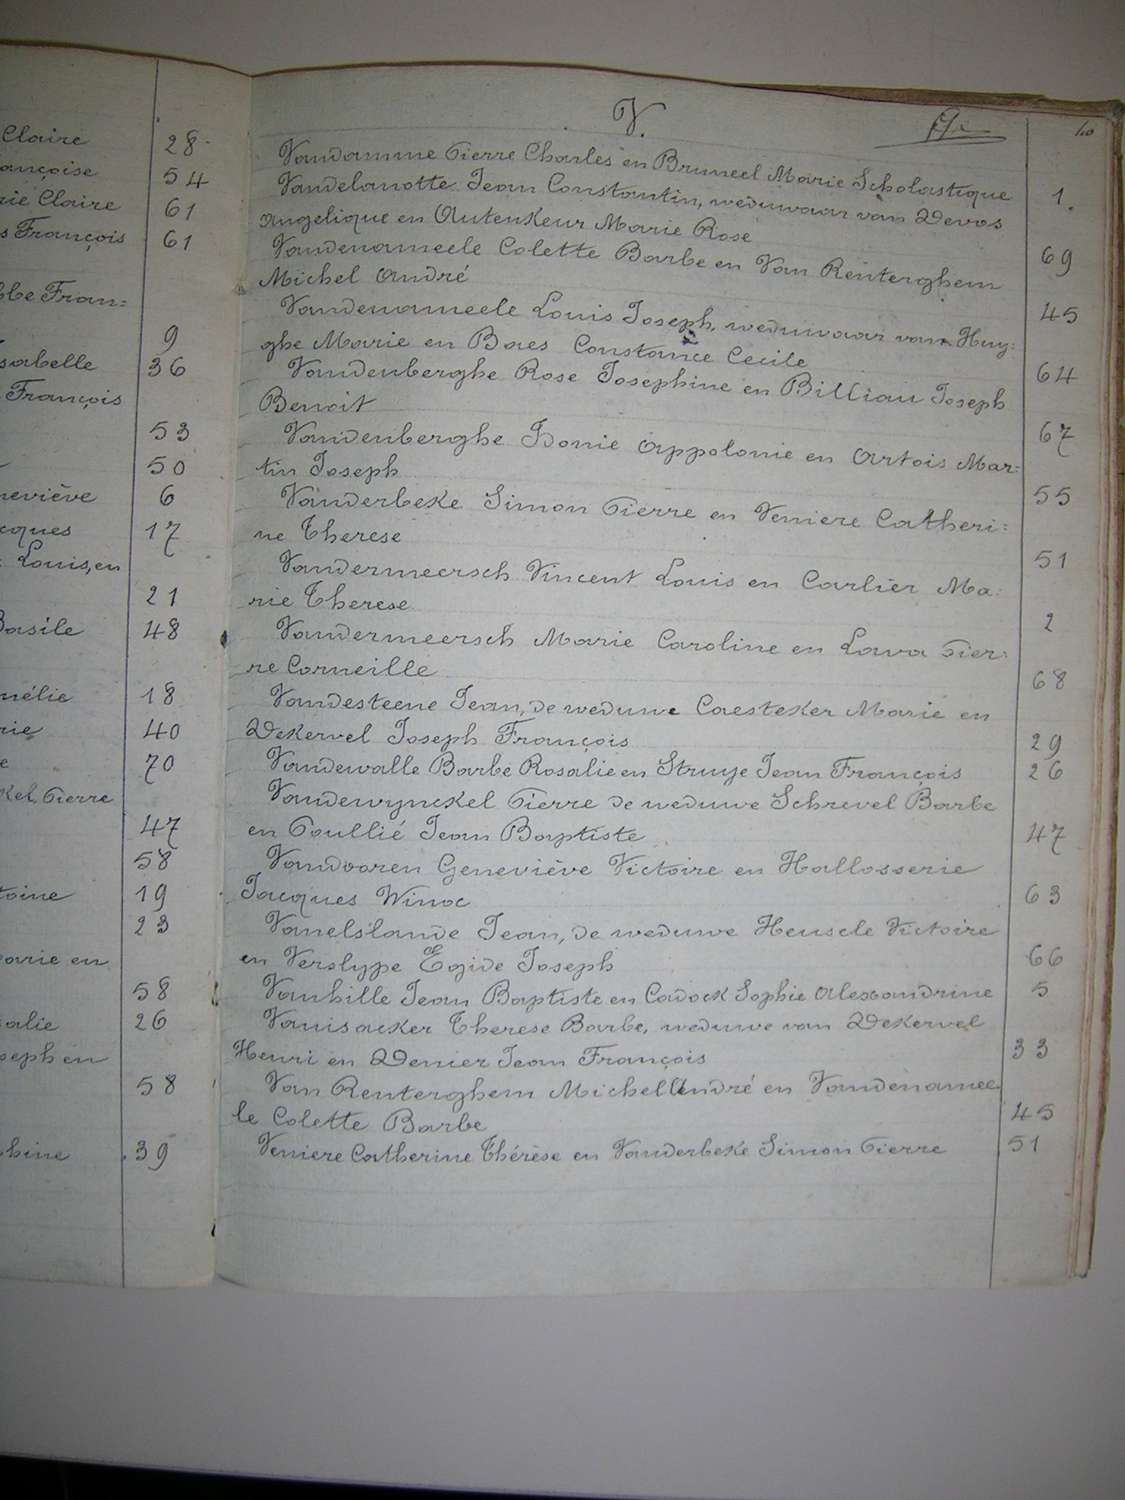 Claire 28
ançoise 54
rie Claire 61
s François 61
bbe Fran=
9
sabelle 36
François
53
50
neviève 6
cques 17
Louis, en
21
Basile 48
mélie 18
rie 40
e 70
kel, Pierre
47
58
toine 19
23
arie en
58
salie 26
oseph en
58
phine 39
V.
Vandamme Pierre Charles en Bruneel Marie Scholastique 1.
Vandelanotte Jean Constantin, weduwaar van Devos
Angelique en Autenkeur Marie Rose 69
Vandenameele Colette Barbe en Van Renterghem
Michel André 45
Vandenameele Louis Joseph, weduwaar van Huy=
ghe Marie en Baes Constance Cecile 64
Vandenberghe Rose Josephine en Billiau Joseph
Benoit 67
Vandenberghe Idonie Appolonie en Artois Mar=
tin Joseph 55
Vanderbeke Simon Pierre en Veniere Catheri=
ne Therese 51
Vandermeersch Vincent Louis en Carlier Ma=
rie Therese 2
Vandermeersch Marie Caroline en Lava Pier=
re Corneille 68
Vandesteene Jean, de weduwe Caesteker Marie en
Dekervel Joseph François 29
Vandewalle Barbe Rosalie en Struye Jean François 26
Vandewynckel Pierre de weduwe Schrevel Barbe
en Poullié Jean Baptiste 47
Vandooren Geneviève Victoire en Hallosserie
Jacques Winoc 63
Vanelslande Jean, de weduwe Heuscle Victoire
en Verslype Egide Joseph 66
Vanhille Jean Baptiste en Cadock Sophie Alexandrine 5
Vanisacker Therese Barbe, weduwe van Dekervel
Henri en Denier Jean François 33
Van Renterghem Michel André en Vandenamee
le Colette Barbe 45
Veniere Catherine Thérèse en Vanderbeke Simon Pierre 51